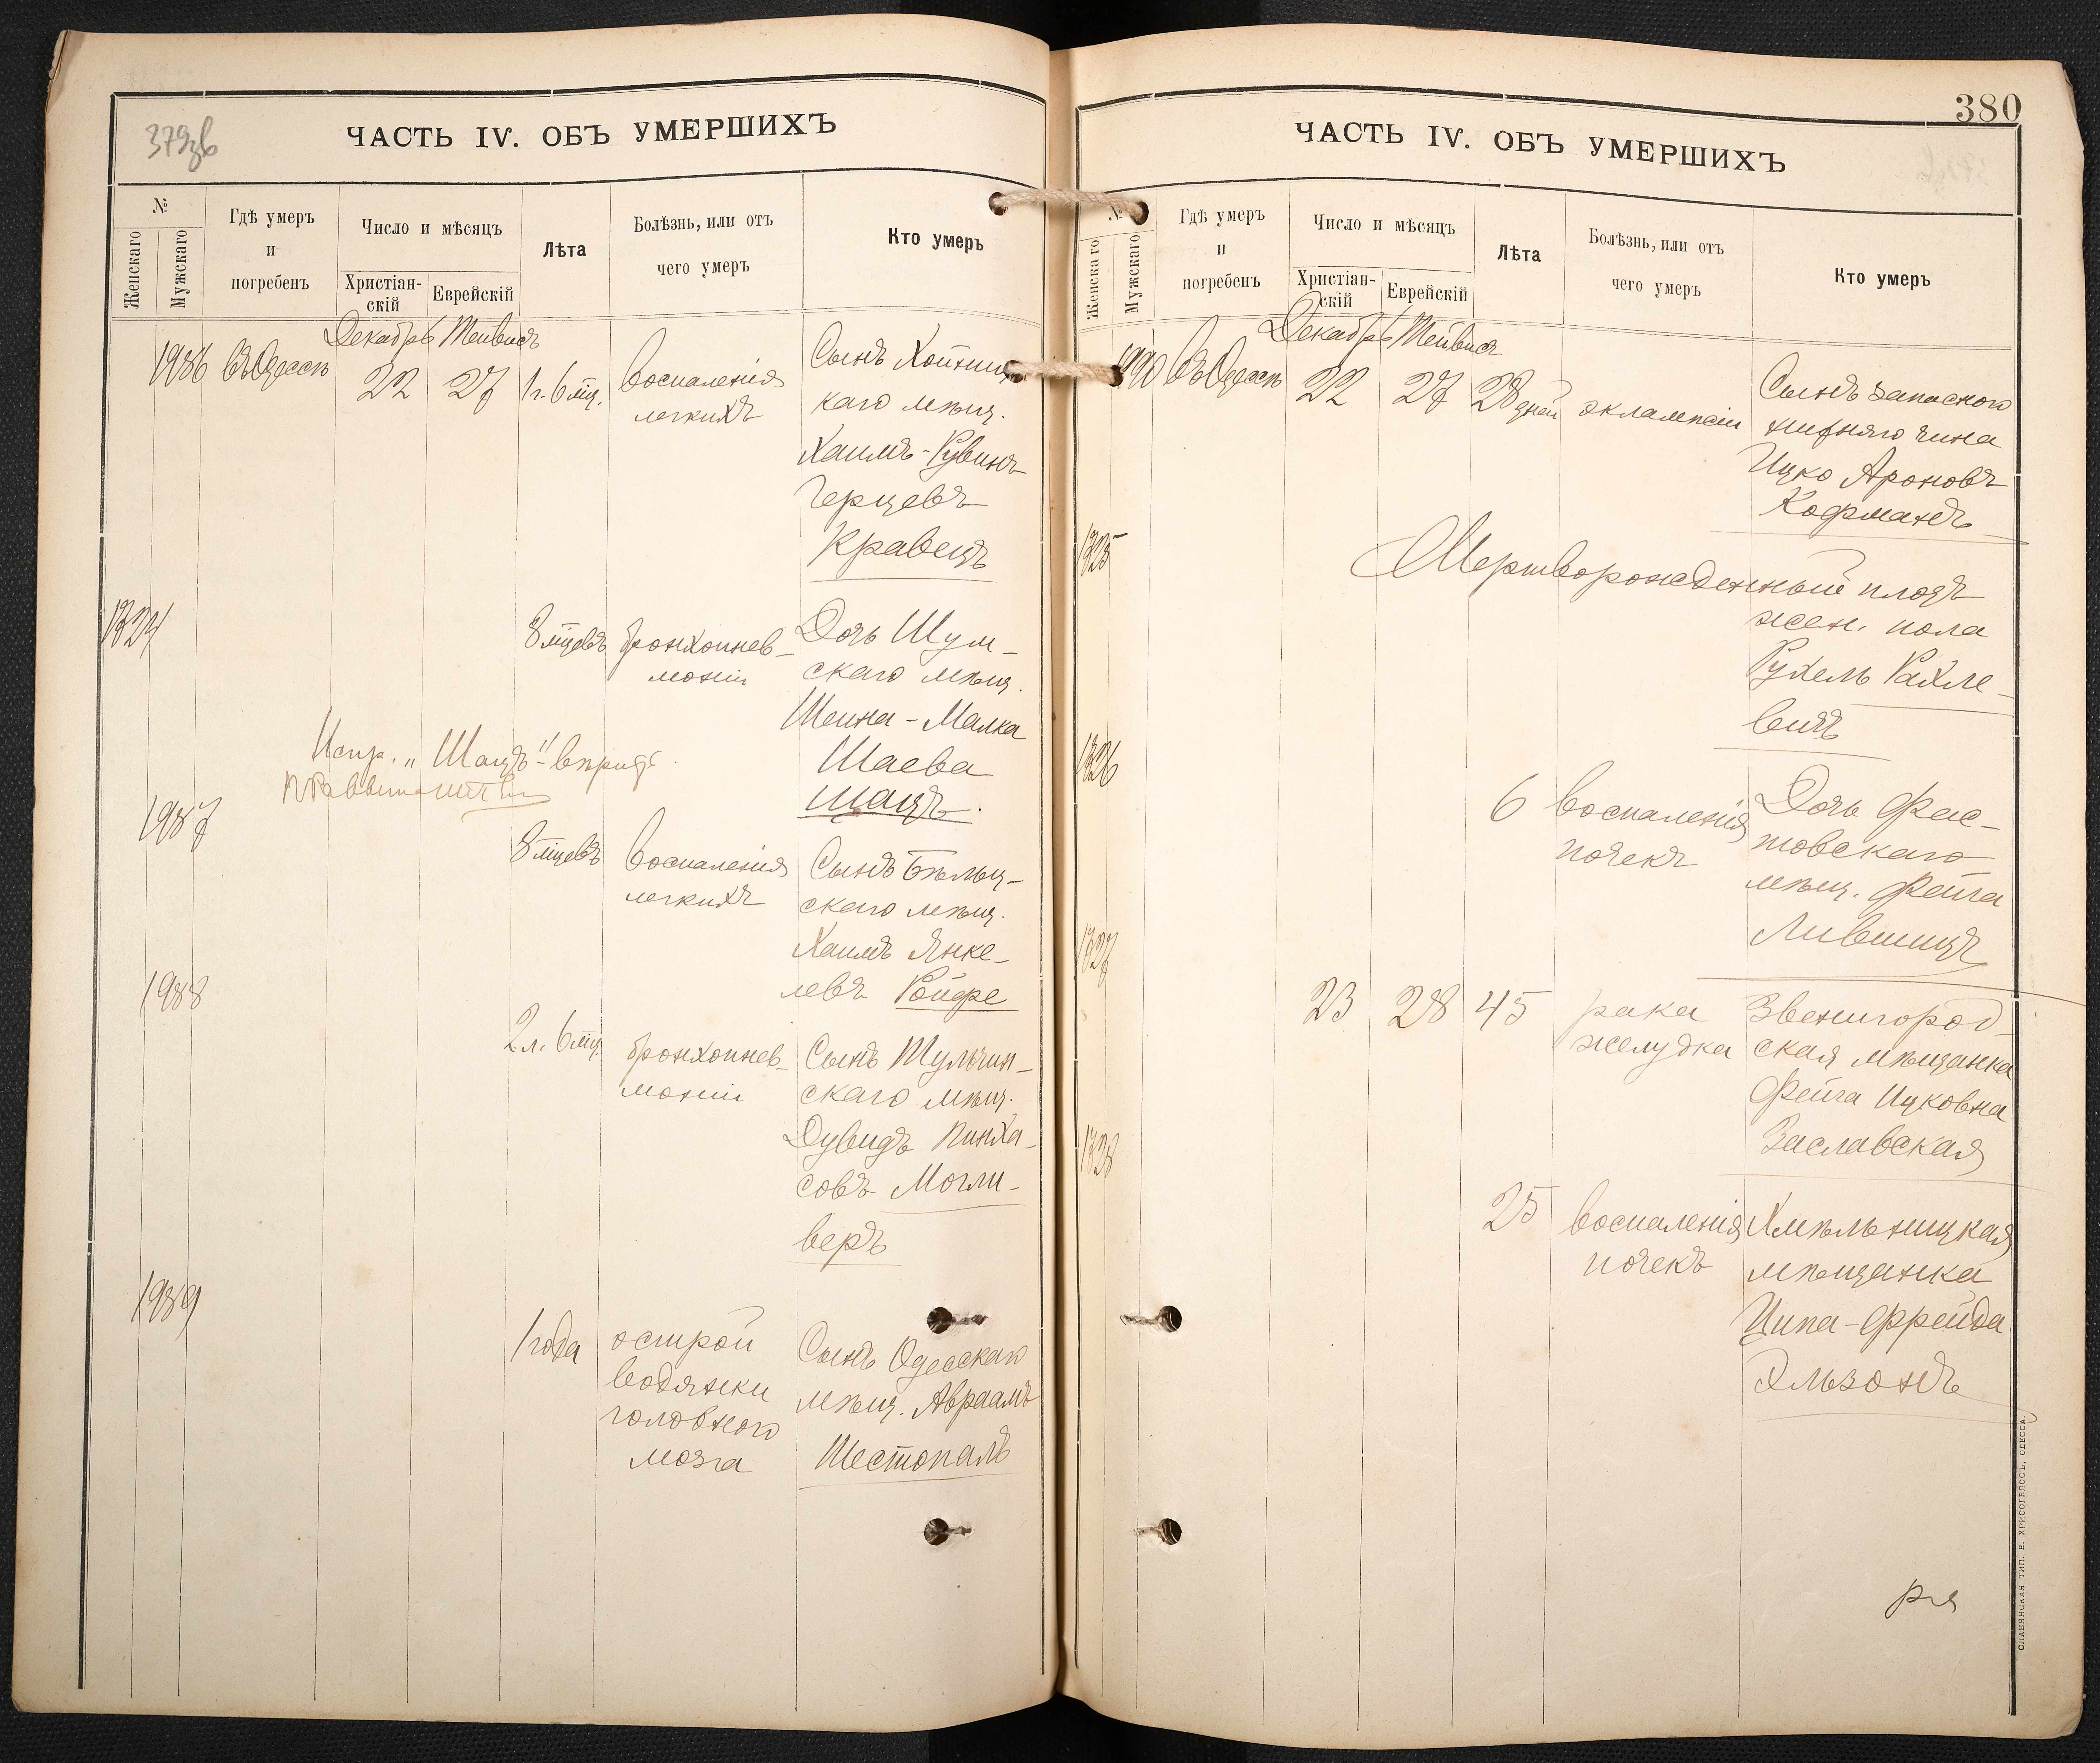 379зв
ЧАСТЬ IV. ОБЪ УМЕРШИХЪ
№
Женскаго
Мужскаго
Гдѣ умеръ
и
погребенъ
Число и мѣсяцъ
Христіан-
скій
Еврейскій
Лѣта
Болѣзнь, или отъ
чего умеръ
Кто умеръ
Декабрь Тейвисъ
1986 въ Одессѣ 22 27 1 г. 6 мц. воспаленія
легкихъ
Сынъ
каго мѣщ.
Хаимъ-Рувинъ
Герцевъ
Кравецъ
1324 8 мцевъ бронхопнев-
моніи
Дочь Шум-
скаго мѣщ.
Шейна-Малка
Шаева
Шацъ.
Испр. „Шацъ"
1987 8 мцевъ воспаленія
легкихъ
Сынъ Бѣльц-
скаго мѣщ.
Хаимъ Янке-
левъ Ройфе
1988 2 л. 6 мц. бронхопнев-
моніи
Сынъ Тульчин-
скаго мѣщ.
Дувидъ Пинха-
совъ Могли-
веръ
1989 1 года острой
водянки
головного
мозга
Сынъ Одесскаго
мѣщ. Авраамъ
Шестопалъ
380
ЧАСТЬ IV. ОБЪ УМЕРШИХЪ
№
Женскаго
Мужскаго
Гдѣ умеръ
и
погребенъ
Число и мѣсяцъ
Христіан-
скій
Еврейскій
Лѣта
Болѣзнь, или отъ
чего умеръ
Кто умеръ
Декабрь Тейвисъ
1990 въ Одессѣ 22 27 28 дней эклампсіи
Сынъ запасного
нижняго чина
Ицко Ароновъ
Кофманъ
1325 Мертворожденный плодъ
жен. пола
Рухель Рахле-
вичъ
1326 6 воспаленія
почекъ
Дочь Фас-
товскаго
мѣщ. Фейга
Лившицъ
1327 23 28 45 рака
желудка
Звенигород-
ская мѣщанка
Фейга Ицковна
Заславская
1328 25 воспаленія
почекъ
Хмѣльницкая
мѣщанка
Ципа-Фрейда
Эльзонъ
ря
СЛАВЯНСКАЯ ТИП. Е. ХРИСОГЕЛОСЪ, ОДЕССА.